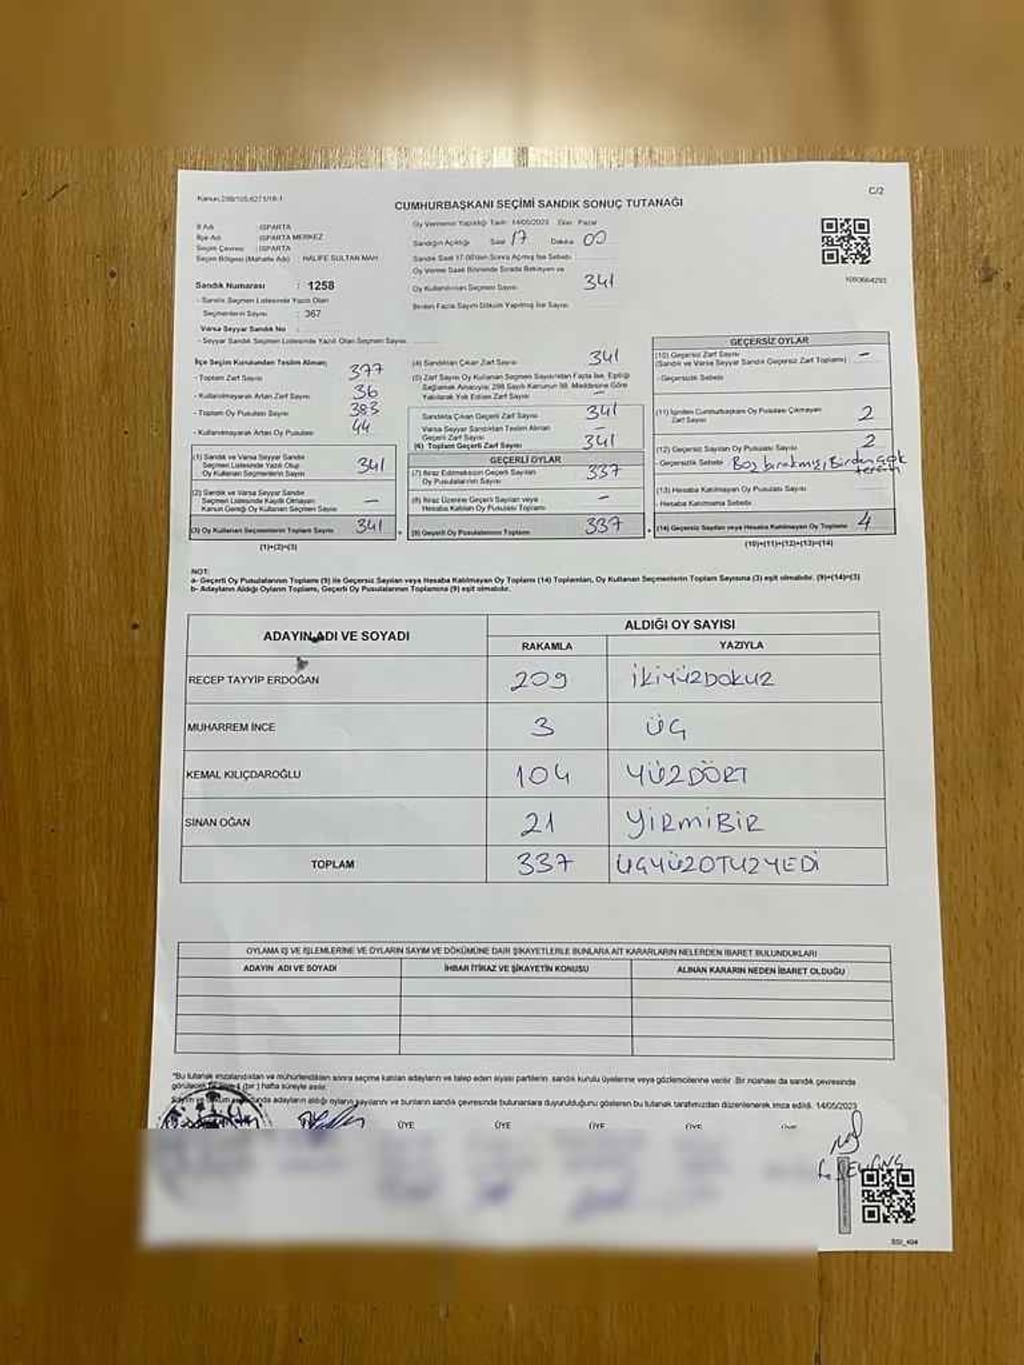 Kanun:298/105,6271/18-1
C/2
CUMHURBAŞKANI SEÇİMİ SANDIK SONUÇ TUTANAĞI
İl Adı : ISPARTA
İlçe Adı : ISPARTA MERKEZ
Seçim Çevresi : ISPARTA
Seçim Bölgesi (Mahalle Adı) : HALİFE SULTAN MAH.
Sandık Numarası : 1258
- Sandık Seçmen Listesinde Yazılı Olan
Seçmenlerin Sayısı : 367
Varsa Seyyar Sandık No :
- Seyyar Sandık Seçmen Listesinde Yazılı Olan Seçmen Sayısı
Oy Vermenin Yapıldığı Tarih: 14/05/2023 Gün: Pazar
Sandığın Açıldığı Saat 17 Dakika 00
Sandık Saat 17:00'den Sonra Açılmış İse Sebebi
Oy Verme Saati Bitiminde Sırada Bekleyen ve
Oy Kullandırılan Seçmen Sayısı 341
Birden Fazla Sayım Döküm Yapılmış İse Sayısı
İlçe Seçim Kurulundan Teslim Alınan;
- Toplam Zarf Sayısı 377
- Kullanılmayarak Artan Zarf Sayısı 36
- Toplam Oy Pusulası Sayısı 383
- Kullanılmayarak Artan Oy Pusulası 44
(1) Sandık ve Varsa Seyyar Sandık
Seçmen Listesinde Yazılı Olup
Oy Kullanan Seçmenlerin Sayısı 341
(2) Sandık ve Varsa Seyyar Sandık
Seçmen Listesinde Kayıtlı Olmayan
Kanun Gereği Oy Kullanan Seçmen Sayısı —
(3) Oy Kullanan Seçmenlerin Toplam Sayısı 341
(1)+(2)=(3)
(4) Sandıktan Çıkan Zarf Sayısı 341
(5) Zarf Sayısı Oy Kullanan Seçmen Sayısından Fazla İse, Eşitliği
Sağlamak Amacıyla; 298 Sayılı Kanunun 98. Maddesine Göre
Yakılarak Yok Edilen Zarf Sayısı —
Sandıkta Çıkan Geçerli Zarf Sayısı 341
Varsa Seyyar Sandıktan Teslim Alınan
Geçerli Zarf Sayısı —
(6) Toplam Geçerli Zarf Sayısı 341
GEÇERLİ OYLAR
(7) İtiraz Edilmeksizin Geçerli Sayılan
Oy Pusulalarının Sayısı 337
(8) İtiraz Üzerine Geçerli Sayılan veya
Hesaba Katılan Oy Pusulası Toplamı —
(9) Geçerli Oy Pusulalarının Toplamı 337
GEÇERSİZ OYLAR
(10) Geçersiz Zarf Sayısı
(Sandık ve Varsa Seyyar Sandık Geçersiz Zarf Toplamı) —
- Geçersizlik Sebebi
(11) İçinden Cumhurbaşkanı Oy Pusulası Çıkmayan
Zarf Sayısı 2
(12) Geçersiz Sayılan Oy Pusulası Sayısı 2
- Geçersizlik Sebebi Boş bırakmış, Birden çok
tercih
(13) Hesaba Katılmayan Oy Pusulası Sayısı
- Hesaba Katılmama Sebebi
(14) Geçersiz Sayılan veya Hesaba Katılmayan Oy Toplamı 4
(10)+(11)+(12)+(13)=(14)
NOT:
a- Geçerli Oy Pusulalarının Toplamı (9) ile Geçersiz Sayılan veya Hesaba Katılmayan Oy Toplamı (14) Toplamları, Oy Kullanan Seçmenlerin Toplam Sayısına (3) eşit olmalıdır. (9)+(14)=(3)
b- Adayların Aldığı Oyların Toplamı, Geçerli Oy Pusulalarının Toplamına (9) eşit olmalıdır.
ADAYIN ADI VE SOYADI
ALDIĞI OY SAYISI
RAKAMLA YAZIYLA
RECEP TAYYİP ERDOĞAN 209 İKİYÜZDOKUZ
MUHARREM İNCE 3 ÜÇ
KEMAL KILIÇDAROĞLU 104 YÜZDÖRT
SİNAN OĞAN 21 YİRMİBİR
TOPLAM 337 ÜÇYÜZOTUZYEDİ
OYLAMA İŞ VE İŞLEMLERİNE VE OYLARIN SAYIM VE DÖKÜMÜNE DAİR ŞİKAYETLERLE BUNLARA AİT KARARLARIN NELERDEN İBARET BULUNDUKLARI
ADAYIN ADI VE SOYADI
İHBAR İTİRAZ VE ŞİKAYETİN KONUSU
ALINAN KARARIN NEDEN İBARET OLDUĞU
"Bu tutanak imzalandıktan ve mühürlendikten sonra seçime katılan adayların ve talep eden siyasi partilerin sandık kurulu üyelerine veya gözlemcilerine verilir. Bir nüshası da sandık çevresinde
(bir) hafta süreyle asılır.
adayların aldığı oyların sayılarını ve bunların sandık çevresinde bulunanlara duyurulduğunu gösteren bu tutanak tarafımızdan düzenlenerek imza edildi. 14/05/2023
ÜYE ÜYE ÜYE ÜYE ÜYE